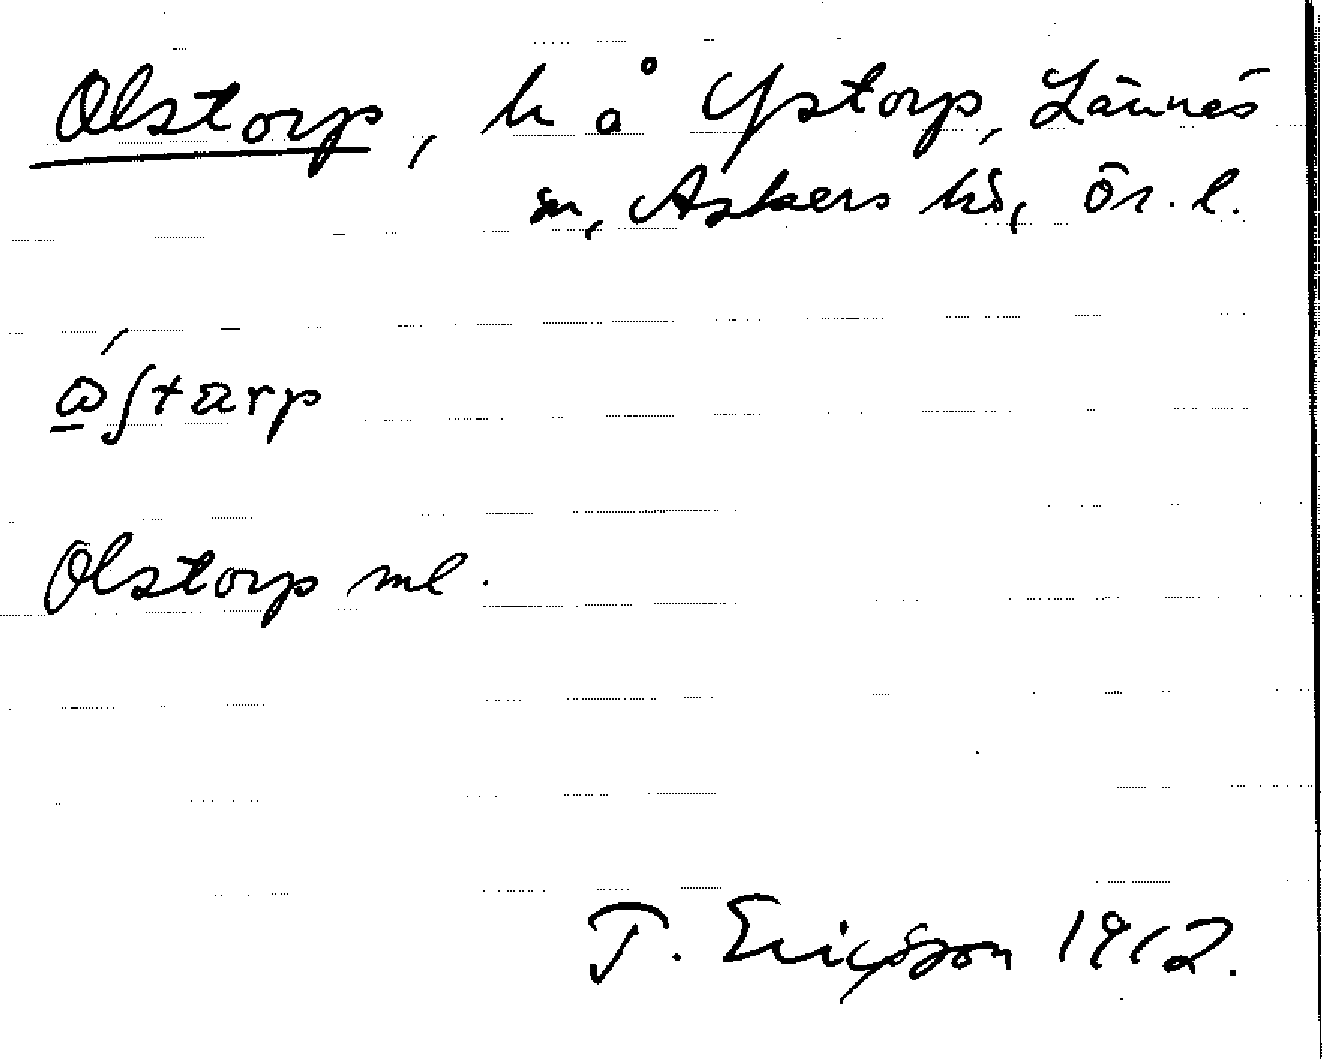 Olstorp, h å Ystorp, Lännäs
sn, Askers hd, Ör. l.
Olstorp ml.
T. Ericsson 1912.